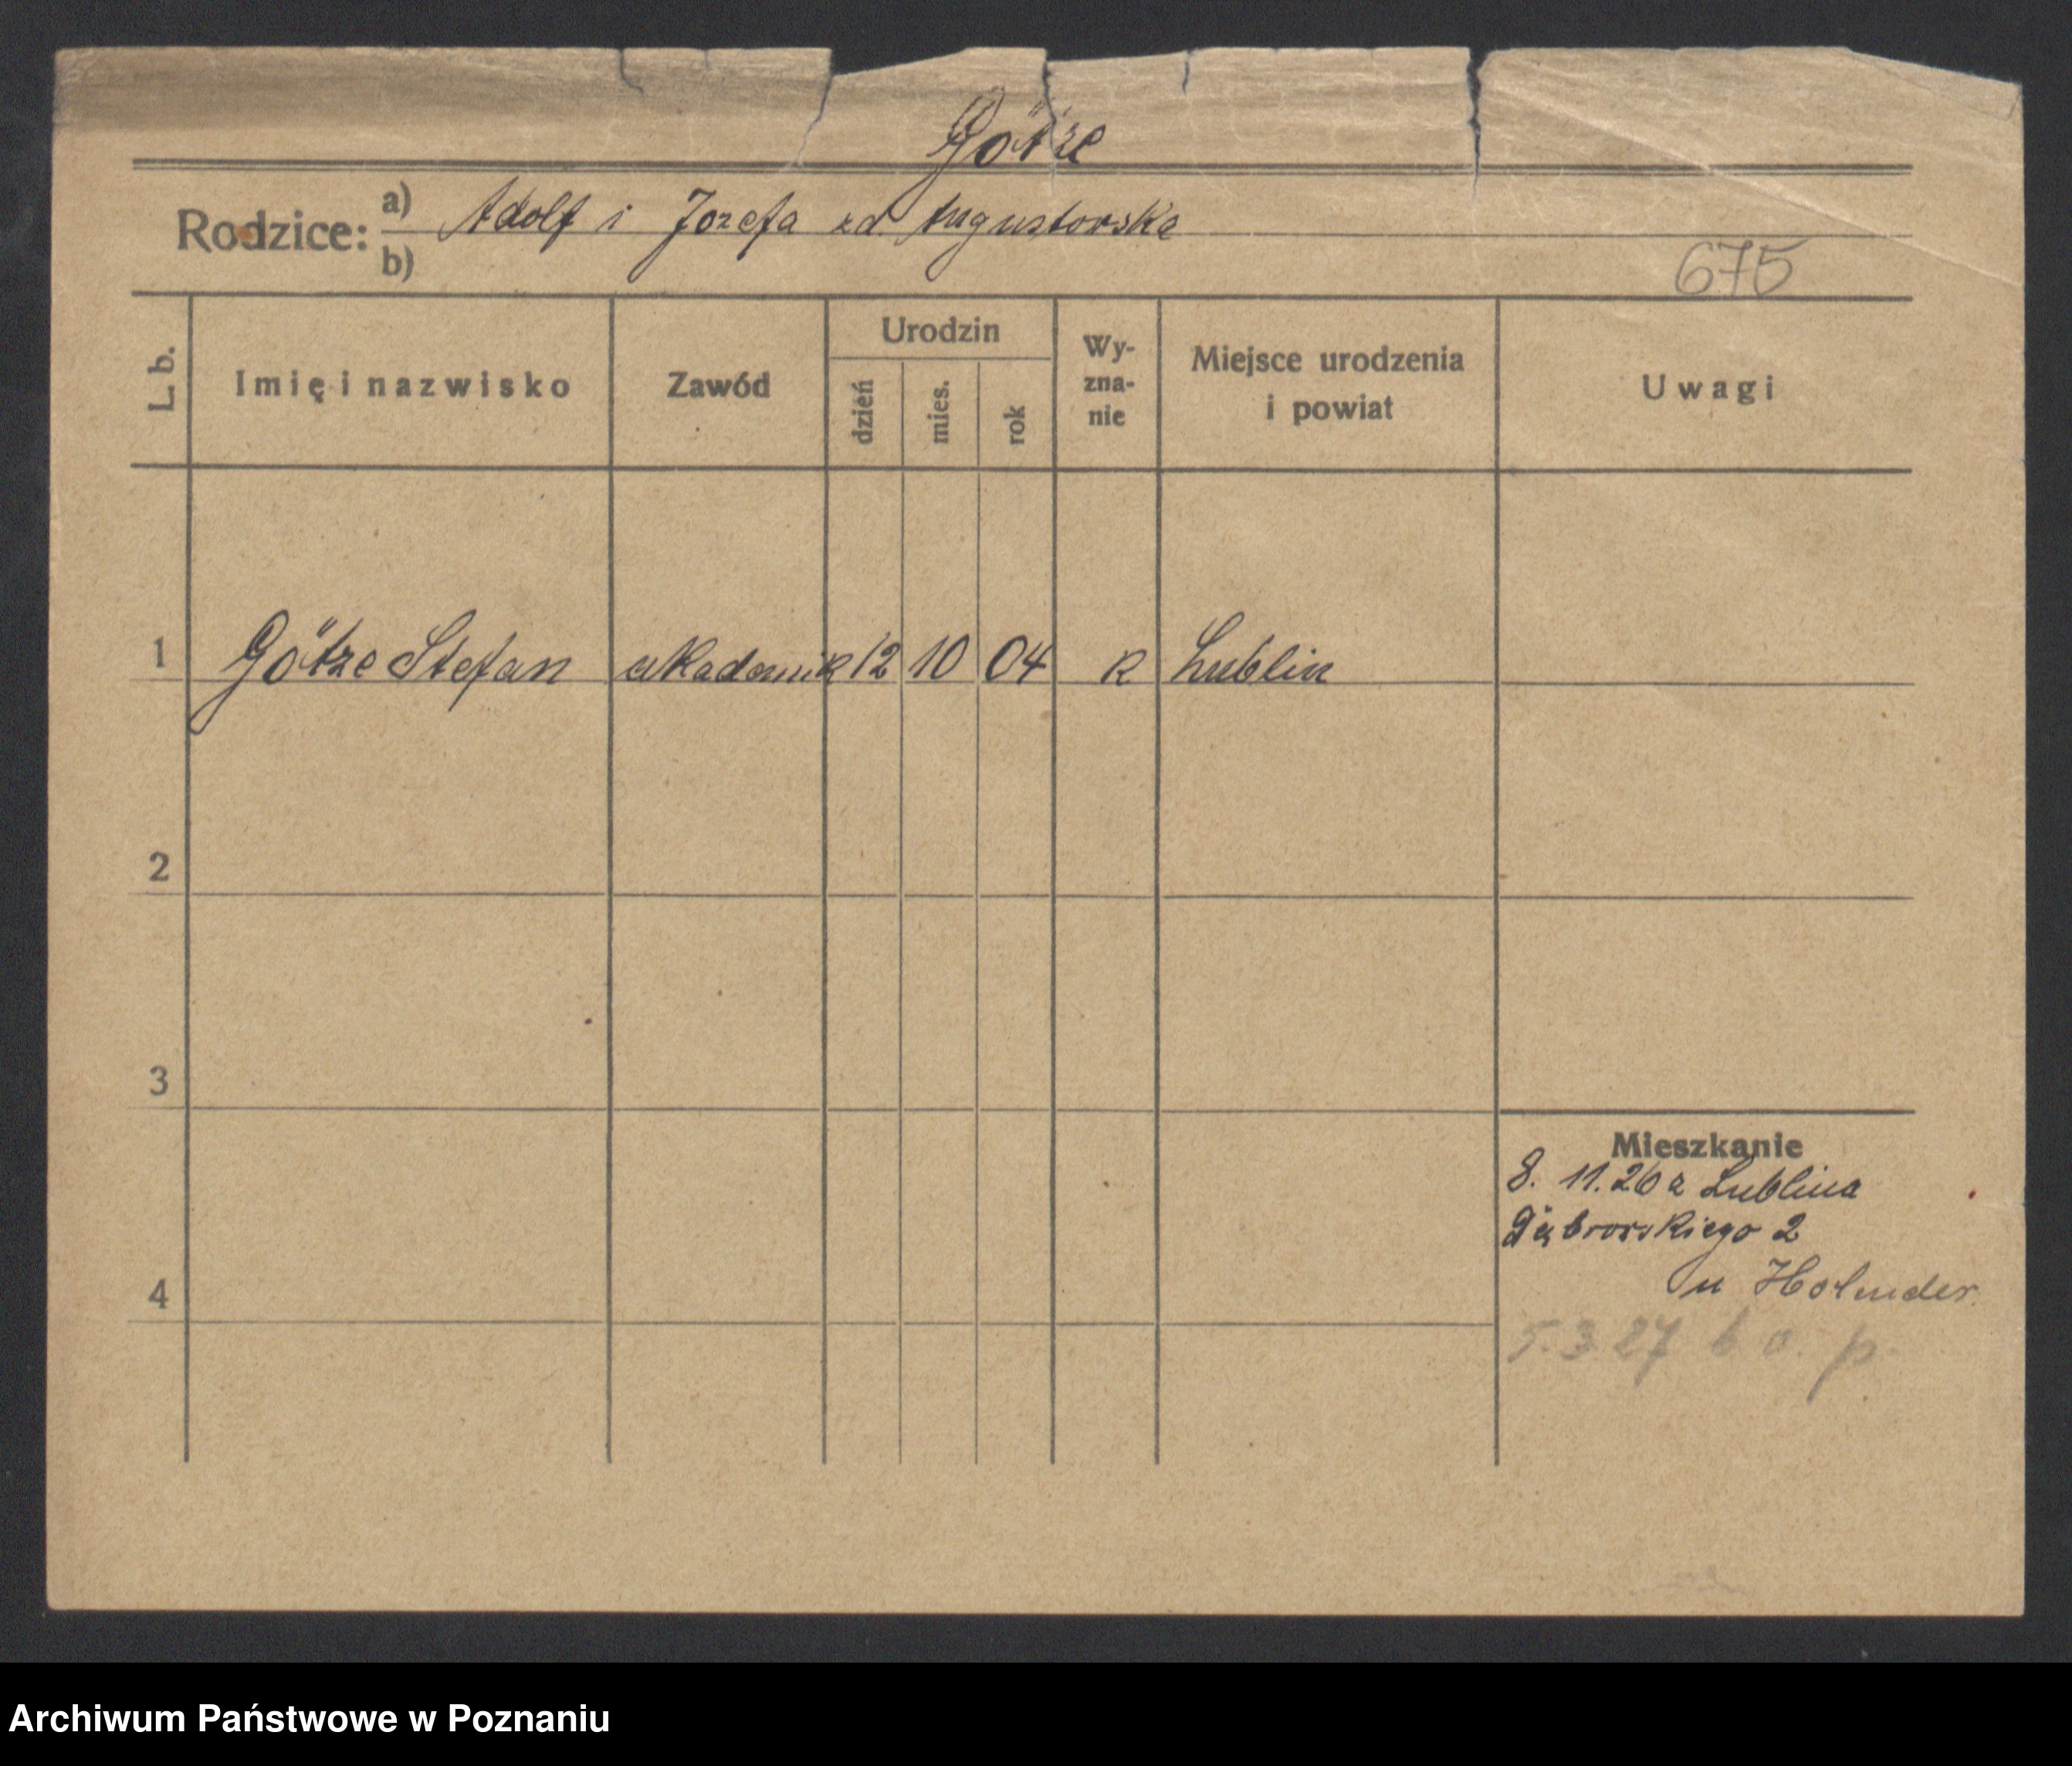 Götze
Rodzice: a) Adolf i Jozefa zd Augustowska
b)
675
L. b.
Imię i nazwisko
Zawód
Urodzin
dzień
mies.
rok
Wy-
zna-
nie
Miejsce urodzenia
i powiat
Uwagi
1 Götze Stefan akademik 12 10 04 k Lublin
2
3
4
Mieszkanie
8. 11. 26 z Lublina
Dąbrowskiego 2
u
5.3 27 b o. p
Archiwum Państwowe w Poznaniu